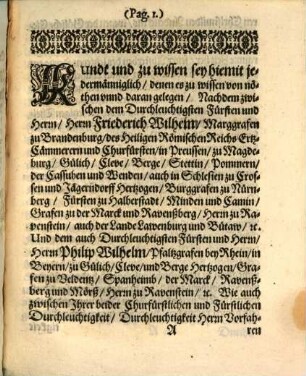 (Pag. 1.)
Kundt und zu wissen sey hiemit je-
dermänniglich / denen es zu wissen von nö-
then vnnd daran gelegen / Nachdem zwi-
schen dem Durchleuchtigsten Fürsten und
Herrn / Herrn Friederich Wilhelm / Marggrafen
zu Brandenburg / des Heiligen Römischen Reichs Ertz-
Cämmerern und Churfürsten / in Preussen / zu Magde-
burg / Gülich / Cleve / Berge / Stettin / Pommern /
der Cassuben und Wenden / auch in Schlesien zu Cros-
sen und Jägerndorff Hertzogen / Burggrafen zu Nürn-
berg / Fürsten zu Halberstadt / Minden und Camin /
Grafen zu der Marck und Ravenßberg / Herrn zu Ra-
venstein / auch der Lande Lawenburg und Bütaw / ꝛc.
Und dem auch Durchleuchtigsten Fürsten und Herrn /
Herrn Philip Wilhelm / Pfaltzgrafen bey Rhein / in
Beyern / zu Gülich / Cleve / und Berge Hertzogen / Gra-
fen zu Veldentz / Spanheimb / der Marck / Ravenß-
berg und Mörß / Herrn zu Ravenstein / ꝛc. Wie auch
zwischen Ihrer beider Churfürstlichen und Fürstlichen
Durchleuchtigkeit / Durchleuchtigkeit Herrn Vorfah-
A ren